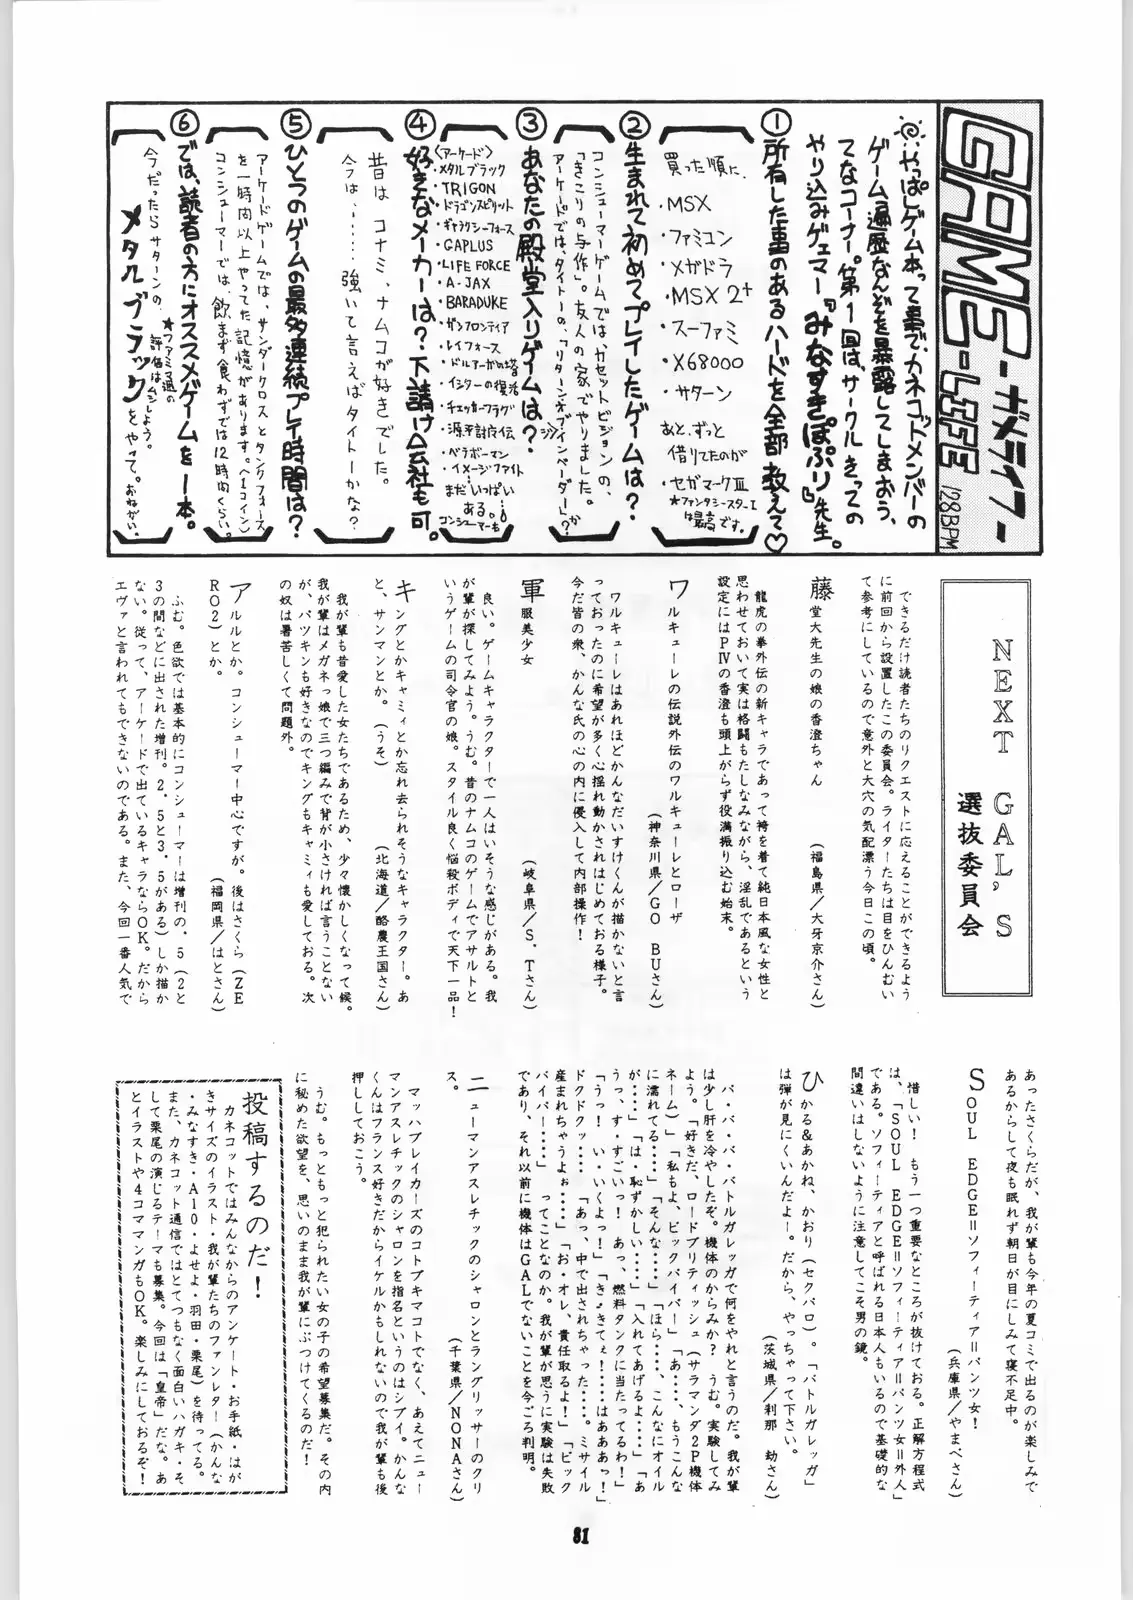 GAME-LIFE
-ガメライフ-
128BPM
やっぱしゲーム本って事で、カネコットメンバーの
ゲーム遍歴なんぞを暴露してしまおう、
てなコーナー。第1回は、サークルきっての
やり込みゲェマー『みなすきぽぷり』先生。
①所有した事のあるハードを全部教えて♡
買った順に、
・MSX
・ファミコン
・メガドラ
・MSX2+
・スーファミ
・X68000
・サターン
あと、ずっと
借りてたのが
・セガマークⅢ
★ファンタシースターⅠ
は最高です。
②生まれて初めてプレイしたゲームは?
コンシューマーゲームでは、カセットビジョンの、
「きこりの与作」。友人の家でやりました。
アーケードでは、タイトーの、「リターンオブインベーダー」?か
③あなたの殿堂入りゲームは?
〈アーケード〉
・メタルブラック
・TRIGON
・ドラゴンスピリット
・ギャラクシーフォース
・GAPLUS
・LIFE FORCE
・A-JAX
・BARADUKE
・ガンフロンティア
・レイフォース
・ドルアーガの塔
・イシターの復活
・チェッカーフラグ
・源平討魔伝
・ベラボーマン
・イメージファイト
まだいっぱい
ある。
コンシューマーも
④好きなメーカーは?下請け会社も可。
昔は コナミ、ナムコが好きでした。
今は、……強いて言えばタイトーかな?
⑤ひとつのゲームの最多連続プレイ時間は?
アーケードゲームでは、サンダークロスとタンクフォース
を一時間以上やってた記憶があります。(1コイン)
コンシューマーでは、飲まず食わずでは12時間くらい。
⑥では、読者の方にオススメゲームを1本。
今だったらサターンの、
★ファミ通の
評価はムシしよう。
メタルブラック
をやって。おねがい。
NEXT GAL'S
選抜委員会
できるだけ読者たちのリクエストに応えることができるよう
に前回から設置したこの委員会。ライターたちは目をひんむい
て参考にしているので意外と大穴の気配漂う今日この頃。
藤堂大先生の娘の香澄ちゃん
(福島県/大牙京介さん)
龍虎の拳外伝の新キャラであって袴を着て純日本風な女性と
思わせておいて実は格闘もたしなみながら、淫乱であるという
設定にはPⅣの香澄も頭上がらず役満振り込む始末。
ワルキューレの伝説外伝のワルキューレとローザ
(神奈川県/GO BUさん)
ワルキューレはあれほどかんなだいすけくんが描かないと言
っておったのに希望が多く心揺れ動かされはじめておる様子。
今だ皆の衆、かんな氏の心の内に侵入して内部操作!
軍服美少女
(岐阜県/S.Tさん)
良い。ゲームキャラクターで一人はいそうな感じがある。我
が輩が探してみよう。うむ。昔のナムコのゲームでアサルトと
いうゲームの司令官の娘。スタイル良く悩殺ボディで天下一品!
キングとかキャミィとか忘れ去られそうなキャラクター。あ
と、サンマンとか。(うそ)
(北海道/酪農王国さん)
我が輩も昔愛した女たちであるため、少々懐かしくなって候。
我が輩はメガネっ娘で三つ編みで背が小さければ言うことない
が、パツキンも好きなのでキングもキャミィも愛しておる。次
の奴は暑苦しくて問題外。
アルルとか。コンシューマー中心ですが。後はさくら(ZE
RO2)とか。
(福岡県/はとさん)
ふむ。色欲では基本的にコンシューマーは増刊の.5(2と
3の間などに出された増刊。2.5と3.5がある)しか描か
ない。従って、アーケードで出ているキャラならOK。だから
エヴァと言われてもできないのである。また、今回一番人気で
あったさくらだが、我が輩も今年の夏コミで出るのが楽しみで
あるからして夜も眠れず朝日が目にしみて寝不足中。
SOUL EDGE=ソフィーティア=パンツ女!
(兵庫県/やまべさん)
惜しい! もう一つ重要なところが抜けておる。正解方程式
は、「SOUL EDGE=ソフィーティア=パンツ女=外人」
である。ソフィーティアと呼ばれる日本人もいるので基礎的な
間違いはしないように注意してこそ男の鏡。
ひかる&あかね、かおり(セクパロ)。「バトルガレッガ」
は弾が見にくいんだよー。だから、やっちゃって下さい。
(茨城県/刹那 劫さん)
バ・バ・バ・バトルガレッガで何をやれと言うのだ。我が輩
は少し肝を冷やしたぞ。機体のからみか? うむ。実験してみ
よう。「好きだ、ロードブリティッシュ(サラマンダ2P機体
ネーム)」「私もよ、ビックバイパー」「あ‥‥、もうこんな
に濡れてる‥‥」「そんな‥‥」「ほら‥‥、こんなにオイル
が‥‥」「は・恥ずかしい‥‥」「入れてあげるよ‥‥」「あ
うっ、す・すごいっ! あっ、燃料タンクに当たってるわ!」
「うっ! い・いくよっ!」「き・きてぇ!‥‥はあああっ!」
ドクドクッ‥‥「あっ、中で出されちゃった‥‥。ミサイル
産まれちゃうよぉ‥‥」「お・オレ、責任取るよ!」「ビック
バイパー‥‥」 ってことなのか。我が輩が思うに実験は失敗
であり、それ以前に機体はGALでないことを今ごろ判明。
ニューマンアスレチックのシャロンとラングリッサーのクリ
ス。
(千葉県/NONAさん)
マッハブレイカーズのコトブキマコトでなく、あえてニュー
マンアスレチックのシャロンを指名というのはシブイ。かんな
くんはフランス好きだからイケルかもしれないので我が輩も後
押ししておこう。
うむ。もっともっと犯られたい女の子の希望募集だ。その内
に秘めた欲望を、思いのまま我が輩にぶつけてくるのだ!
投稿するのだ!
カネコットではみんなからのアンケート・お手紙・はが
きサイズのイラスト・我が輩たちのファンレター(かんな
・みなすき・A10・よせよ・羽田・栗尾)を待ってる。
また、カネコット通信ではとてつもなく面白いハガキ・そ
して栗尾の演じるテーマも募集。今回は「皇帝」だな。あ
とイラストや4コママンガもOK。楽しみにしておるぞ!
81